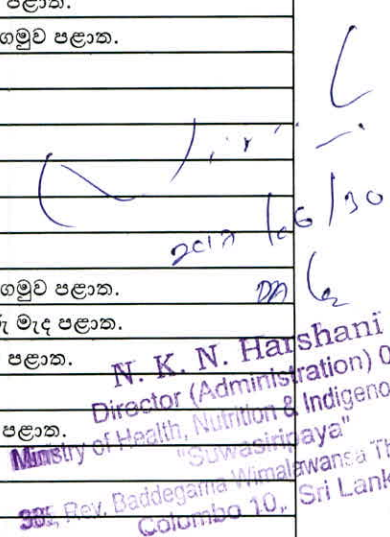 පළාත.
ගමුව පළාත.
2017/06/30
ගමුව පළාත.
මැද පළාත.
පළාත.
N. K. N. Harshani
Director (Administration) 0
පළාත.
Ministry of Health, Nutrition & Indigeno
"Suwasiripaya"
385, Rev. Baddegama Wimalawansa Th
Colombo 10, Sri Lank